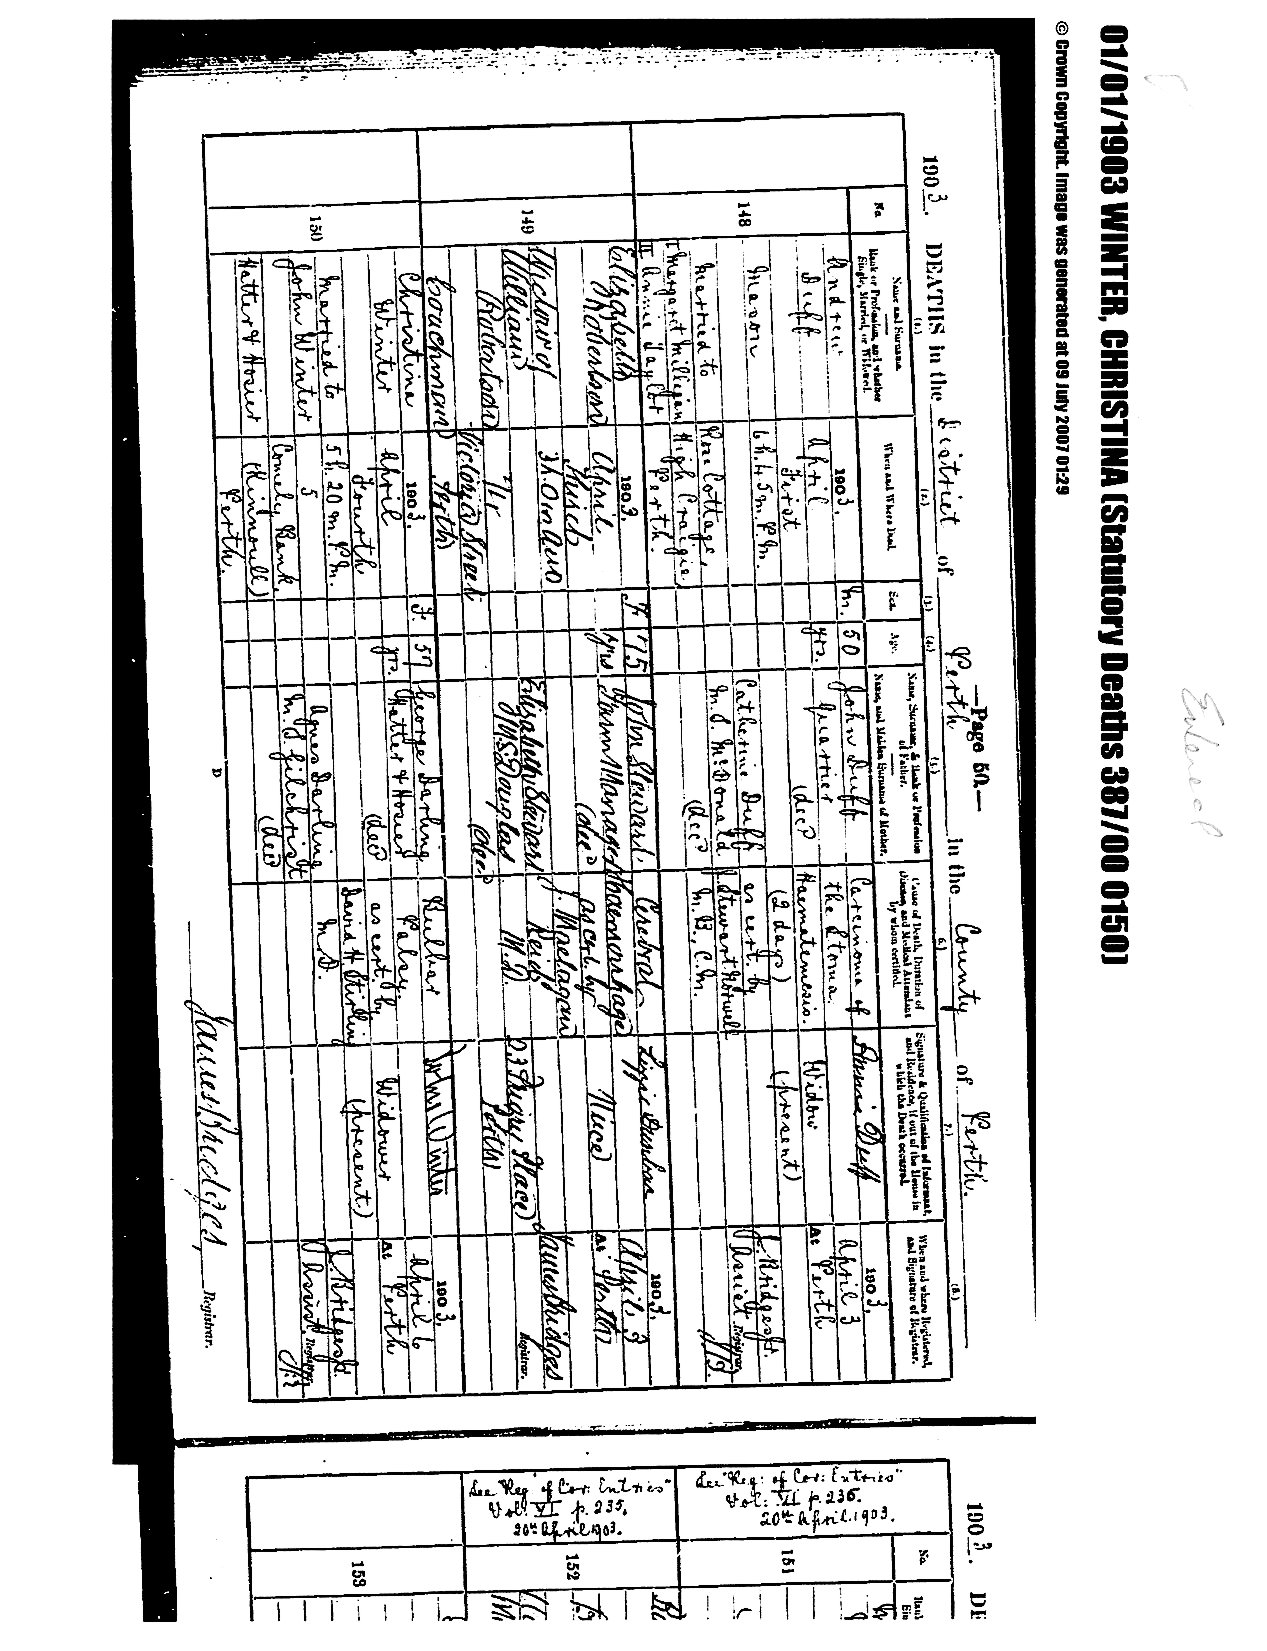 01/01/1903 WINTER, CHRISTINA (Statutory Deaths 387/00 0150)
© Crown Copyright. Image was generated at 09 July 2007 01:29
—Page 50.—
1903. DEATHS in the District of Perth in the County of Perth.
(1.) (2.) (3.) (4.) (5.) 6.) 7.) (8.)
No.
Name and Surname.
Rank or Profession, and whether
Single, Married, or Widowed.
When and Where Died.
Sex.
Age.
Name, Surname, & Rank or Profession
of Father.
Name, and Maiden Surname of Mother.
Cause of Death, Duration of
Disease, and Medical Attendant
by whom certified.
Signature & Qualification of Informant,
and Residence, if out of the House in
which the Death occurred.
When and where Registered,
and Signature of Registrar.
148
Andrew
Duff
Mason
Married to
I Margaret Milligan
II Annie Taylor
1903.
April
First
6h. 45m. P.M.
Rose Cottage,
High Craigie
Perth.
M.
50
yrs.
John Duff
Quarrier
(decd)
Catherine Duff
M.S. McDonald
(decd)
Carcinoma of
the Stoma.
Haematemesis.
(2 days)
as cert. by
M.B., C.M.
Annie Duff
Widow
(present)
1903.
April 3
At Perth
J. Bridges Jr.
Assist. Registrar.
149
Elizabeth
Robertson
Widow of
William
Robertson
Coachman
1903.
April
Third
3h. 0m AM
71
Victoria Street
Perth
F.
75
yrs
John Stewart
Farm Manager
(decd)
Elizabeth Stewart
M.S. Douglas
(decd)
Cerebral
Haemorrhage
as cert. by
Reid
M.D.
Lizzie Dunbar
Niece
Place
Perth
1903.
April 3
At Perth
James Bridges
Registrar.
150
Christina
Winter
Married to
John Winter
Hatter & Hosier
1903.
April
Fourth
5h. 20m. P.M.
5
Comely Bank,
(Kinnoull)
Perth.
F.
57
yrs.
George Darling
Hatter & Hosier
(decd)
Agnes Darling
M.S. Gilchrist
(decd)
Bulbar
Palsy.
as cert. by
David H. Stirling
M.D.
John Winter
Widower
(present.)
1903.
April 6
At Perth
J. Bridges Jr.
Assist. Registrar.
D
James Bridges, Registrar.
1903. DE
No.
151
See "Reg: of Cor: Entries"
Vol: VI p. 236.
20th April. 1903.
152
See "Reg of Cor: Entries"
Vol: VI p. 235.
20th April 1903.
153